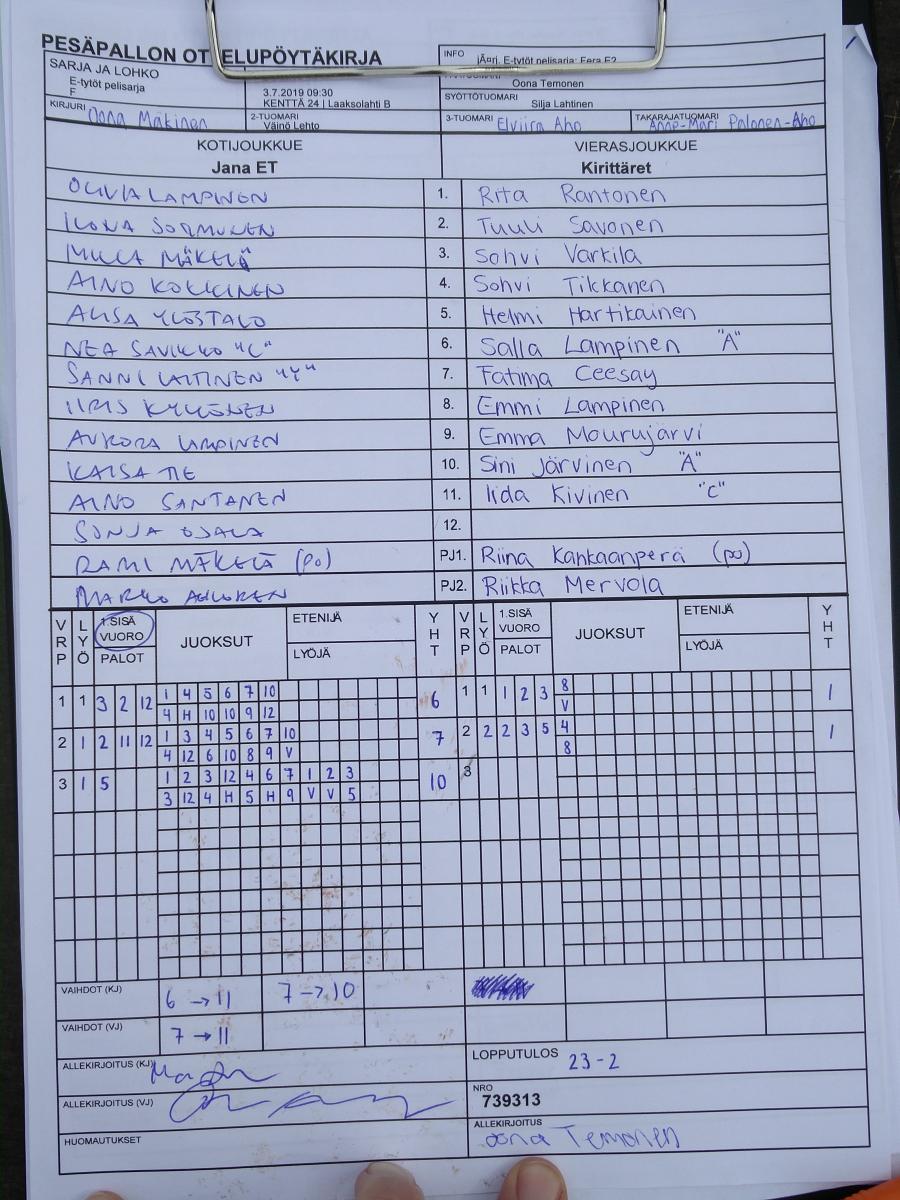 PESÄPALLON OT ELUPÖYTÄKIRJA
INFO E-tytöt pelisarja:
SARJA JA LOHKO
E-tytöt pelisarja
F
3.7.2019 09:30
KENTTÄ 24 | Laaksolahti B
Oona Temonen
SYÖTTÖTUOMARI
Silja Lahtinen
KIRJURI Oona Makinen
2-TUOMARI
Väinö Lehto
3-TUOMARI Elviira Aho
TAKARAJATUOMARI
Anne-Mari Palonen-Aho
KOTIJOUKKUE VIERASJOUKKUE
Jana ET Kirittäret
OLIVIA LAMPINEN 1. Rita Rantonen
ILONA SORMUNEN 2. Tuuli Savonen
MILLA MÄKELÄ 3. Sohvi Varkila
AINO KOKKINEN 4. Sohvi Tikkanen
ALISA YLÖSTALO 5. Helmi Hartikainen
NEA SAVIKKO "C" 6. Salla Lampinen "A"
SANNI LAITINEN "Y" 7. Fatima Ceesay
IIRIS KYLLÖNEN 8. Emmi Lampinen
AURORA LAMPINEN 9. Emma Mourujärvi
KAISA TIE 10. Sini Järvinen "A"
AINO SANTANEN 11. Iida Kivinen "C"
SONJA OJALA 12.
RAMI MÄKELÄ (PO) PJ1. Riina Kankaanperä (po)
MARKO PJ2. Riikka Mervola
VRP LYÖ 1.SISÄ VUORO PALOT JUOKSUT ETENIJÄ LYÖJÄ YHT VRP LYÖ 1.SISÄ VUORO PALOT JUOKSUT ETENIJÄ LYÖJÄ YHT
1 1 3 2 12 1 4 5 6 7 10 6 1 1 1 2 3 8 1
4 H 10 10 9 12 V
2 1 2 11 12 1 3 4 5 6 7 10 7 2 2 2 3 5 4 1
4 12 6 10 8 9 V 8
3 1 5 1 2 3 12 4 6 7 1 2 3 10 3
3 12 4 H 5 H 9 V V 5
VAIHDOT (KJ) 6 → 11 7 → 10
VAIHDOT (VJ) 7 → 11
ALLEKIRJOITUS (KJ)
LOPPUTULOS 23-2
ALLEKIRJOITUS (VJ)
NRO
739313
HUOMAUTUKSET
ALLEKIRJOITUS
Oona Temonen